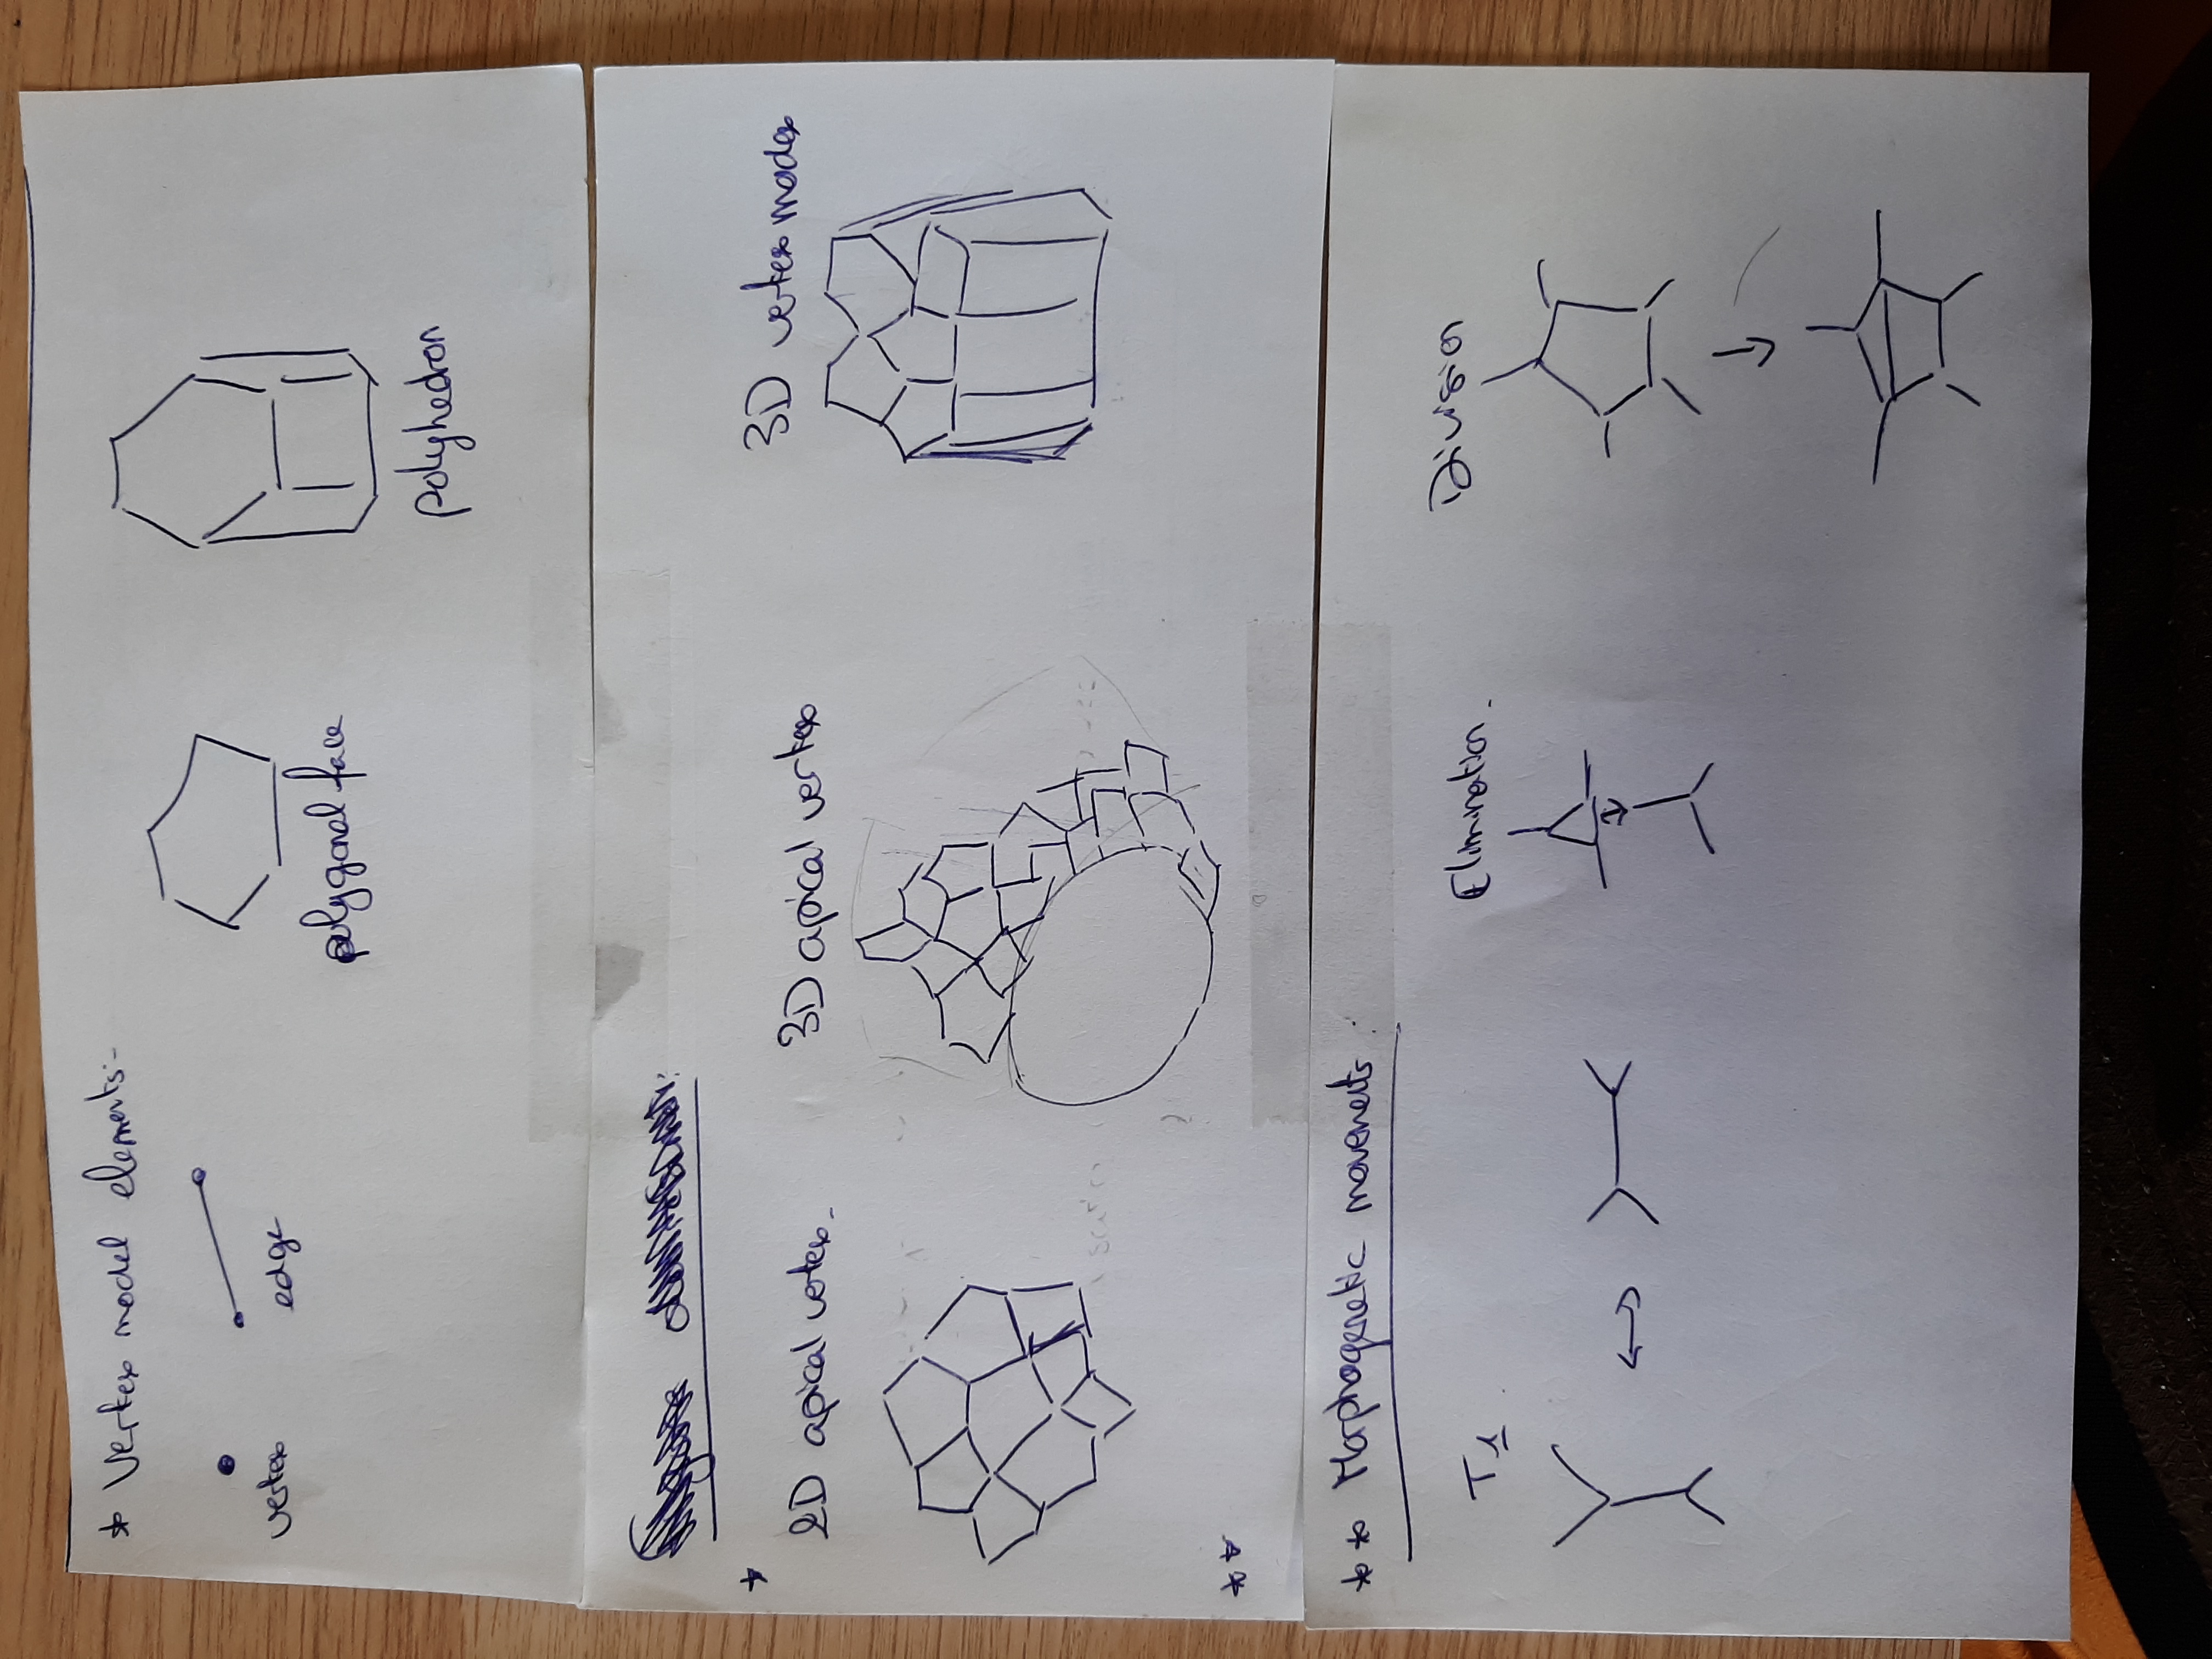 * Vertex model elements:
vertex
edge
polygonal face
polyhedron
*
2D apical vertex.
3D apical vertex
3D vertex model
**
** Morphogenetic movements:
T1
Elimination.
Division